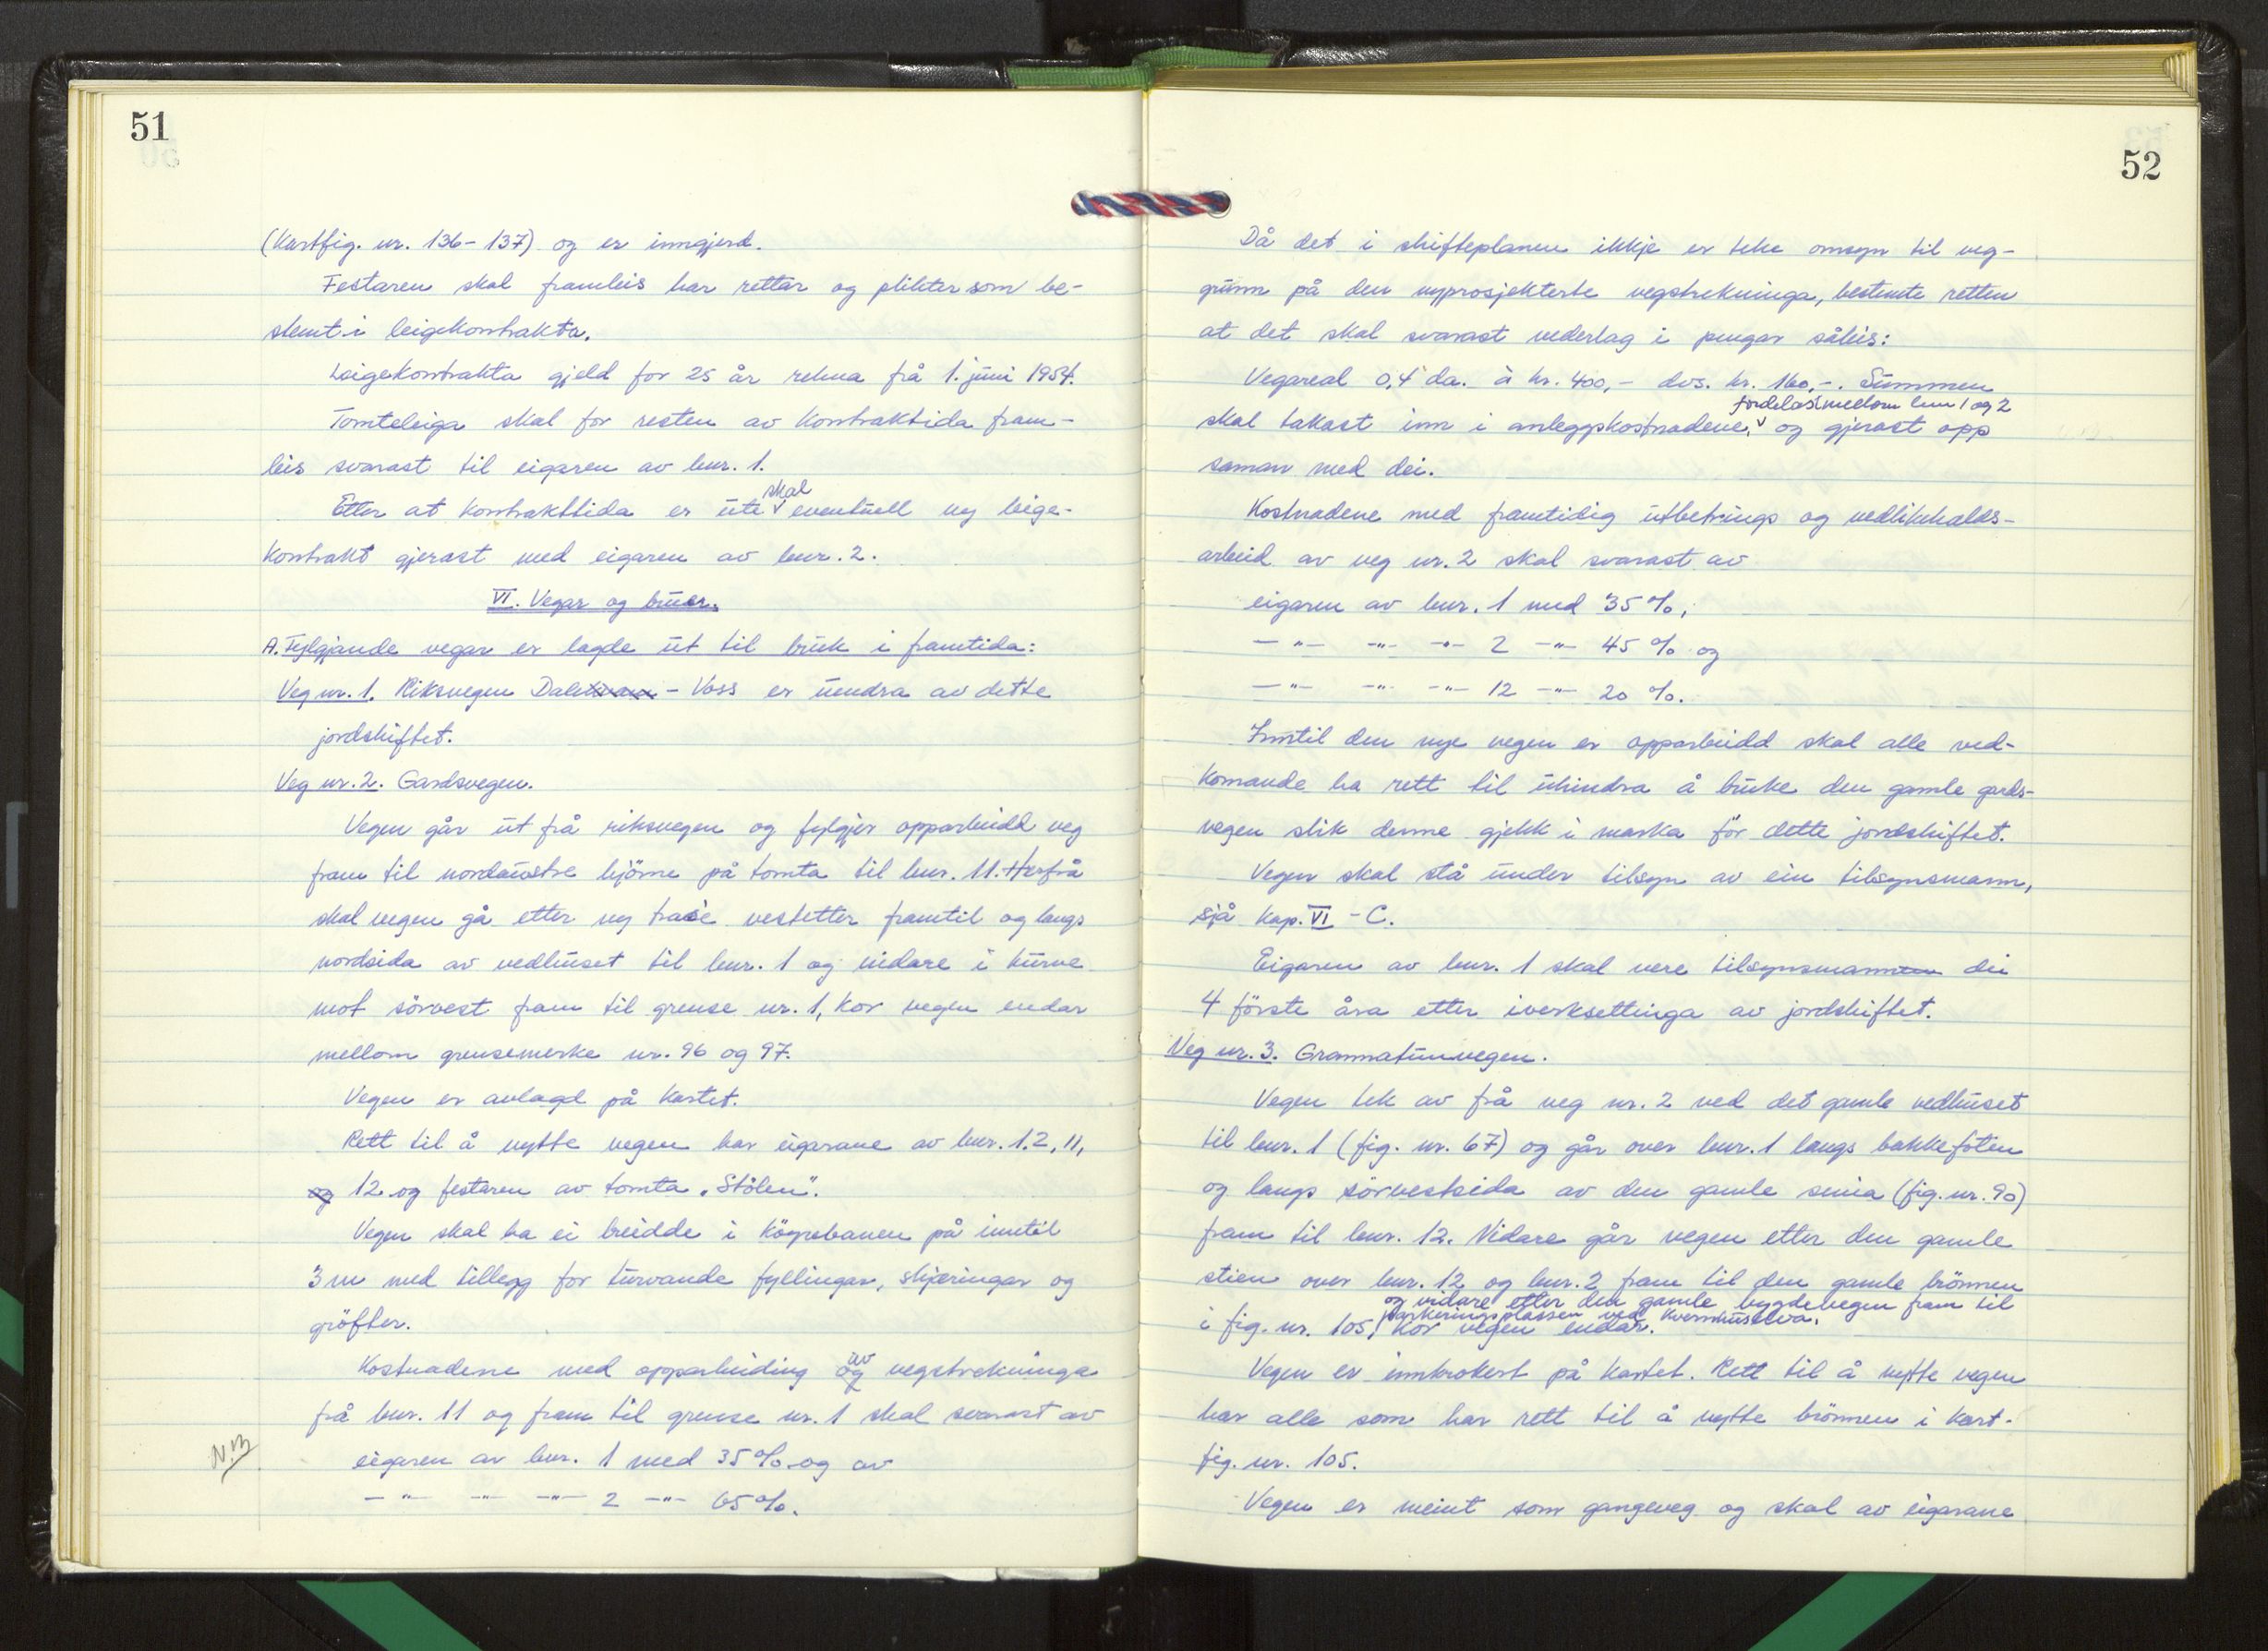 51
(Kartfig. nr. 136-137) og er inngjerd.
Festaren skal framleis har rettar og plikter som be-
stemt i leigekontrakta.
Leigekontrakta gjeld for 25 år rekna frå 1. juni 1954.
Tomteleiga skal for resten av kontraktida fram-
leis svarast til eigaren av bnr. 1.
skal
Etter at kontrakttida er ute eventuell ny leige-
kontrakt gjerast med eigaren av bnr. 2.
VI. Vegar og bruer.
A. Fylgjande vegar er lagde ut til bruk i framtida:
Veg nr. 1. Riksvegen Dale - Voss er uendra av dette
jordskiftet.
Veg nr. 2. Gardsvegen.
Vegen går ut frå riksvegen og fylgjer opparbeidd veg
fram til nordaustre hjörne på tomta til bnr. 11. Herfrå
skal vegen gå etter ny trasè vestetter framtil og langs
nordsida av vedhuset til bnr. 1 og vidare i kurve
mot sörvest fram til grense nr. 1, kor vegen endar
mellom grensemerke nr. 96 og 97.
Vegen er avlagd på kartet.
Rett til å nytte vegen har eigarane av bnr. 1. 2, 11,
og 12 og festaren av tomta „Stölen".
Vegen skal ha ei breidde i köyrebanen på inntil
3 m med tillegg for turvande fyllingar, skjæringar og
gröfter.
av
Kostnadene med opparbeiding og vegstrekninga
frå bnr. 11 og fram til grense nr. 1 skal svarast av
N.B
eigaren av bnr. 1 med 35 % og av
- " - - " - - " - 2 - " - 65 %.
52
Då det i skifteplanen ikkje er teke omsyn til veg-
grunn på den nyprosjekterte vegstrekninga, bestemte retten
at det skal svarast vederlag i pengar såleis:
Vegareal 0,4 da. à kr. 400,- dvs. kr. 160,-. Summen
fordelast mellom bnr 1 og 2
skal takast inn i anleggskostnadene, og gjerast opp
saman med dei.
Kostnadene med framtidig utbetrings og vedlikehalds-
arbeid av veg nr. 2 skal svarast av
eigaren av bnr. 1 med 35 %,
- " - - " - - " - 2 - " - 45 % og
- " - - " - - " - 12 - " - 20 %.
Inntil den nye vegen er opparbeidd skal alle ved-
komande ha rett til uhindra å bruke den gamle gards-
vegen slik denne gjekk i marka för dette jordskiftet.
Vegen skal stå under tilsyn av ein tilsynsmann,
sjå kap. VI - C.
Eigaren av bnr. 1 skal vere tilsynsmann dei
4 förste åra etter iverksettinga av jordskiftet.
Veg nr. 3. Grannatunvegen.
Vegen tek av frå veg nr. 2 ved det gamle vedhuset
til bnr. 1 (fig. nr. 67) og går over bnr. 1 langs bakkefoten
og langs sörvestsida av den gamle smia (fig. nr. 90)
fram til bnr. 12. Vidare går vegen etter den gamle
stien over bnr. 12 og bnr. 2 fram til den gamle brönnen
og vidare etter den gamle bygdevegen fram til
parkeringsplassen ved Kvernhuselva,
i fig. nr. 105, kor vegen endar.
Vegen er innkrokert på kartet. Rett til å nytte vegen
har alle som har rett til å nytte brönnen i kart-
fig. nr. 105.
Vegen er meint som gangeveg og skal av eigarane